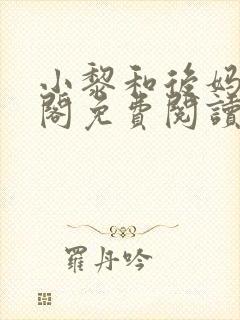 小黎和後妈
閣免費閱讀
羅丹吟